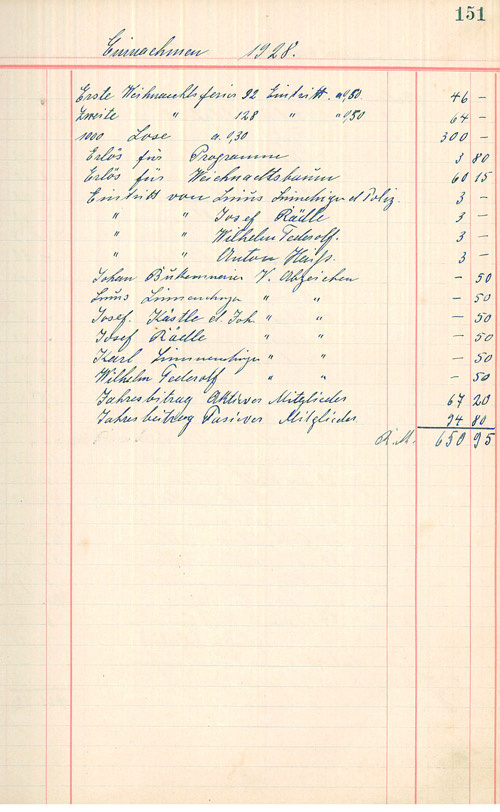 151
Einnachmen 1928.
Erste Weihnachtsfeier 92 Eintritt. a 0,50 46 –
Zweite " 128 " " 0,50 64 –
1000 Lose a. 0,30 300 –
Erlös für Programme 3 80
Erlös für Weichnachtsbaum 60 15
Eintritt von Linus d. Poliz. 3 –
" " Josef Rädle 3 –
" " Wilhelm Federolf. 3 –
" " Anton 3 –
Johan V. Abzeichen – 50
Linus " " – 50
Josef. Kästle d. Joh. " " – 50
Josef Räedle " " – 50
Karl " " – 50
Wilhelm Federolf " " – 50
Jahresbitrag Aktiver Mitglieder 67 20
Jahresbeitrag Pasiver Mitglieder 94 80
R.M. 650 95